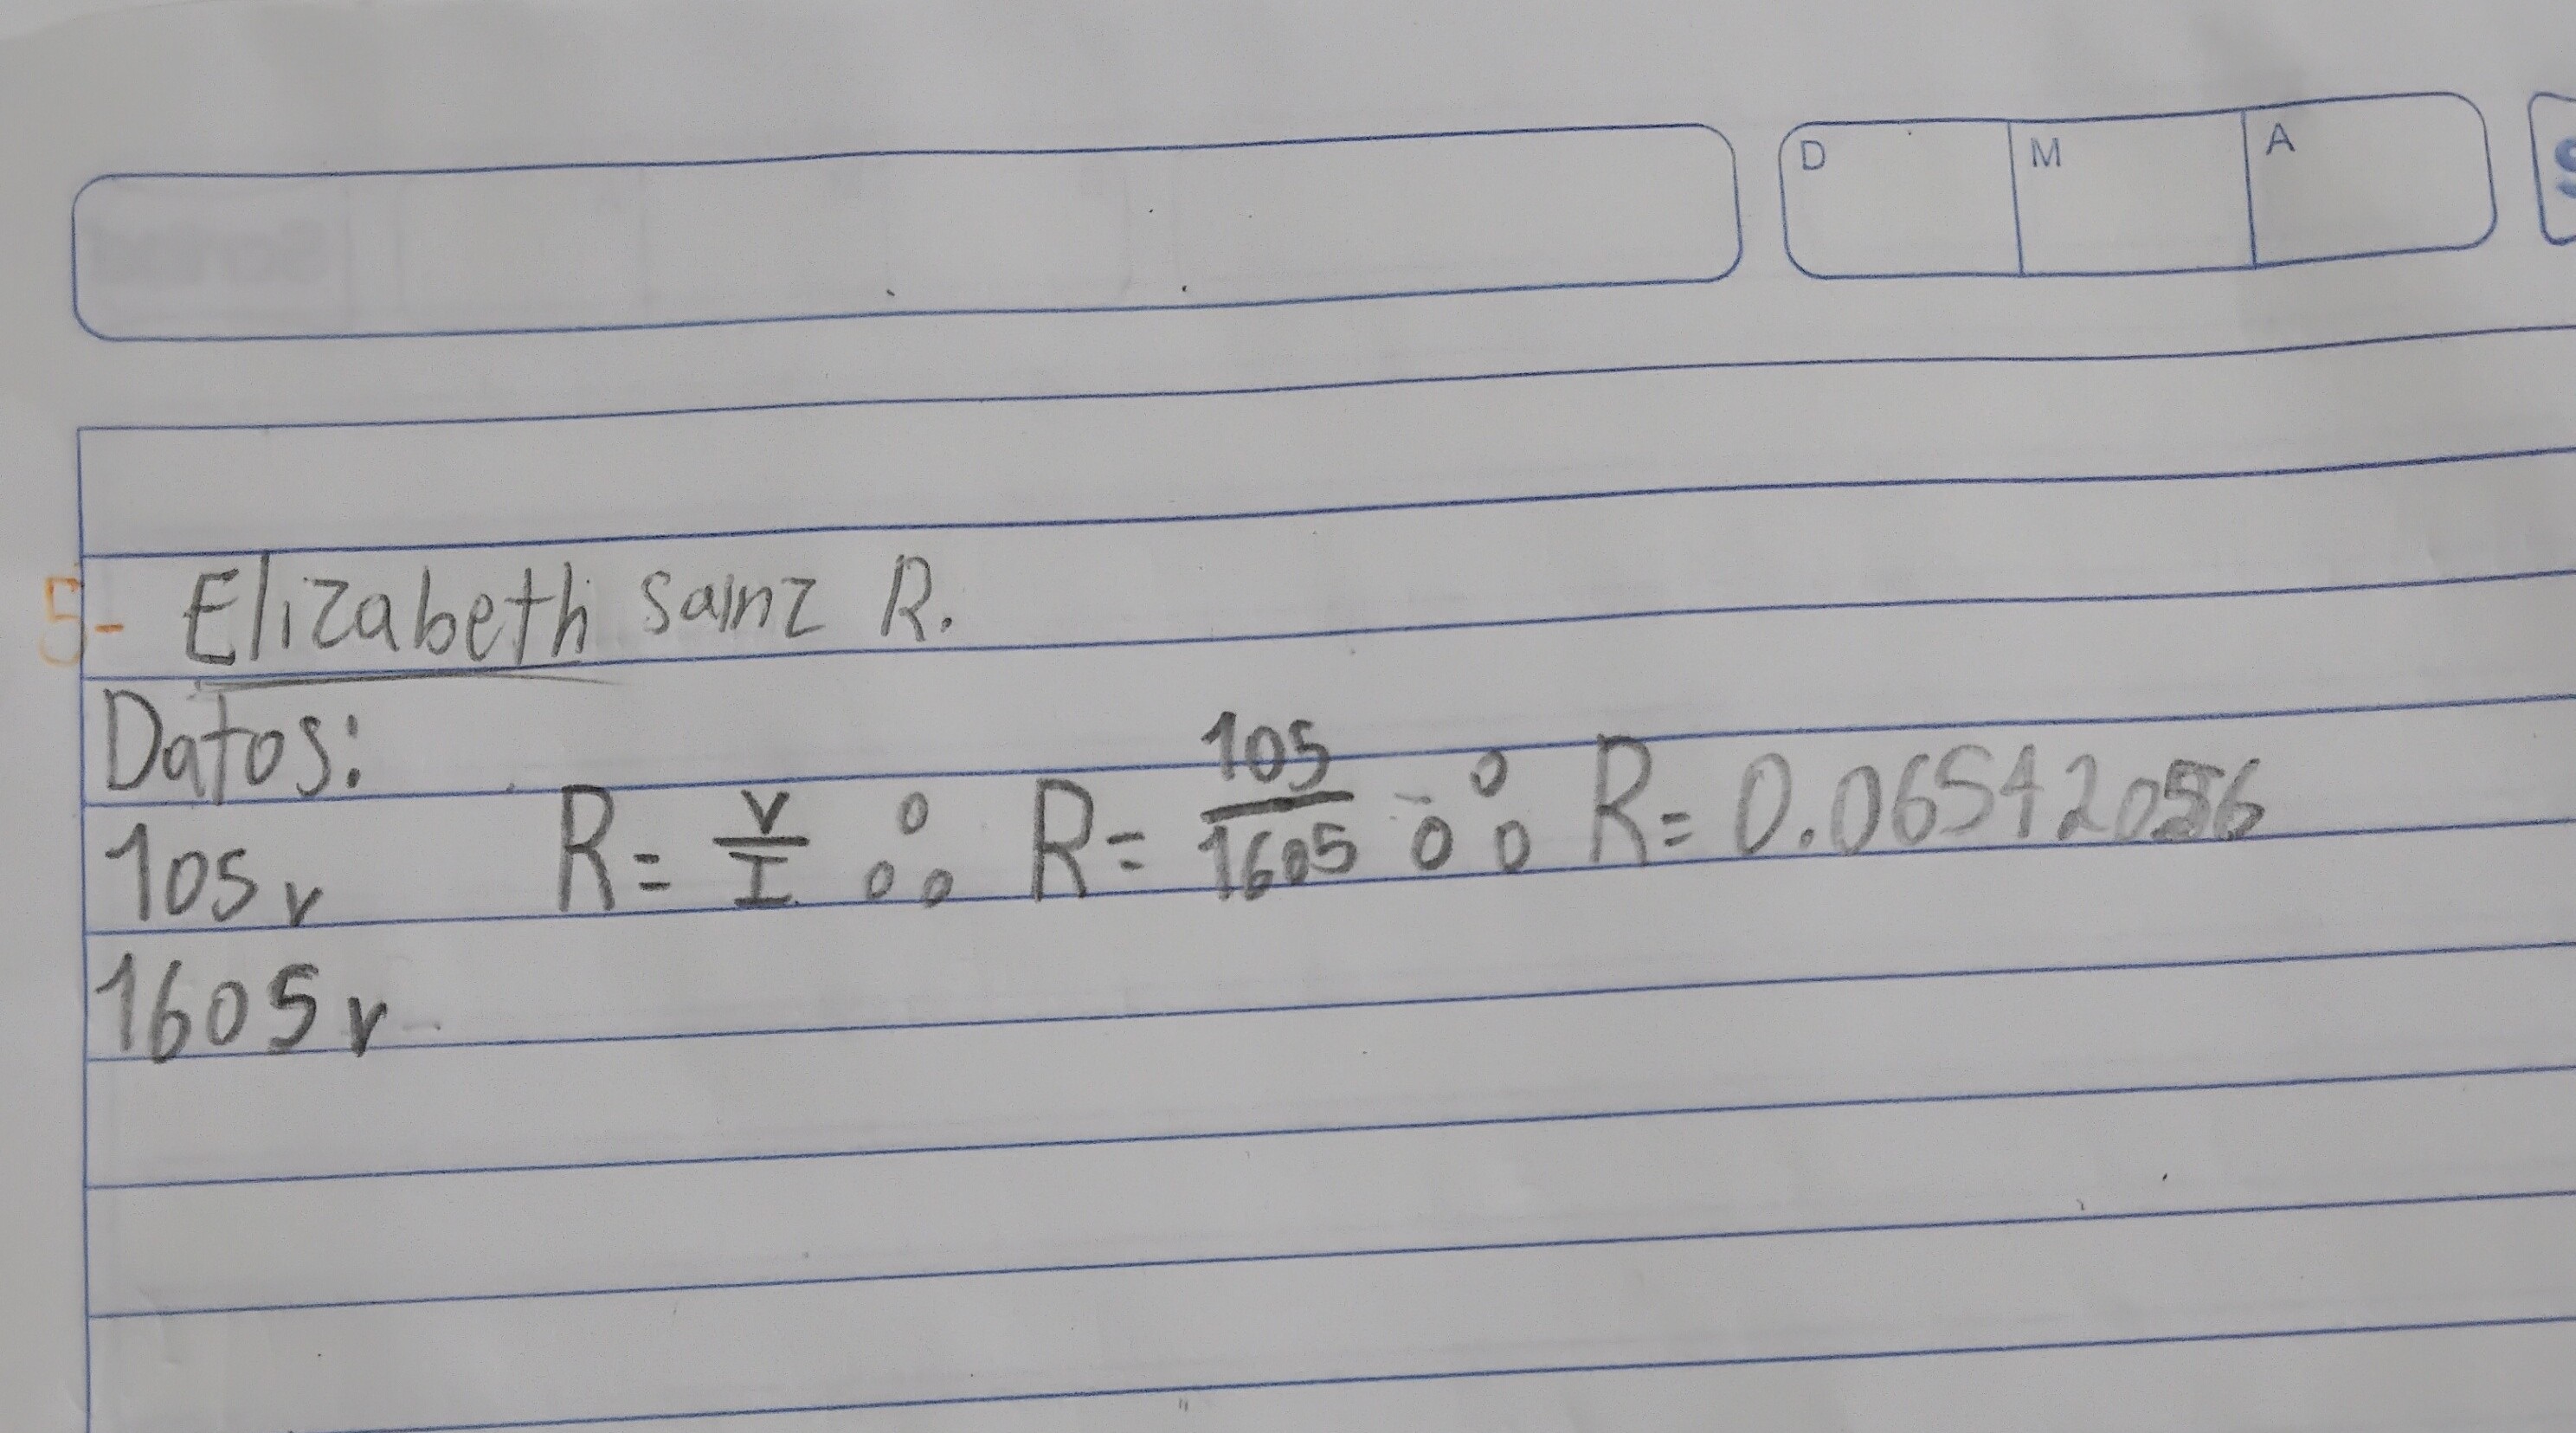 D M A
5- Elizabeth Sainz R.
Datos:
105 v R = V/I ∴ R = 105/1605 ∴ R = 0.0654205
1605 v